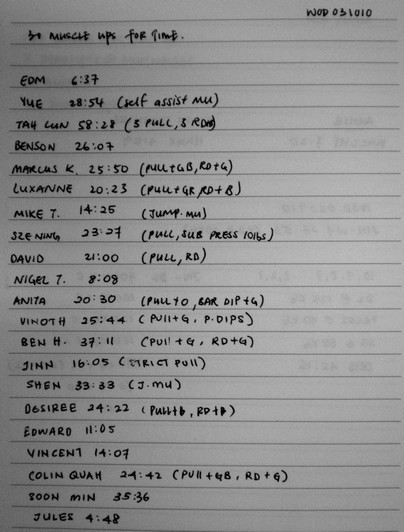 WOD 031010
30 MUSCLE UPS FOR TIME.
EDM 6:37
YUE 28:54 (self assist MU)
TAH LUN 58:28 (S PULL, S RD)
BENSON 26:07
MARCUS K. 25:50 (PULL+GB, RD+G)
LUXANNE 20:23 (PULL+GR, RD+B)
MIKE T. 14:25 (JUMP. MU)
SZE NING 23:27 (PULL, SUB PRESS 10lbs)
DAVID 21:00 (PULL, RD)
NIGEL T. 8:08
ANITA 20:30 (PULL+O, BAR DIP+G)
VINOTH 25:44 (PULL+G, P.DIPS)
BEN H. 37:11 (PULL+G, RD+G)
JINN 16:05 (STRICT PULL)
SHEN 33:33 (J.MU)
DESIREE 24:22 (PULL+B, RD+B)
EDWARD 11:05
VINCENT 14:07
COLIN QUAH 24:42 (PULL+GB, RD+G)
SOON MIN 35:36
JULES 4:48